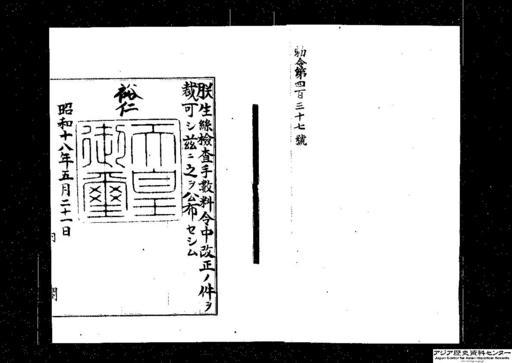 勅令第四百三十七號
朕生絲檢査手數料令中改正ノ件ヲ
裁可シ茲ニ之ヲ公布セシム
裕仁
天皇
御璽
昭和十八年五月二十一日
アジア歴史資料センター
Japan Center for Asian Historical Records